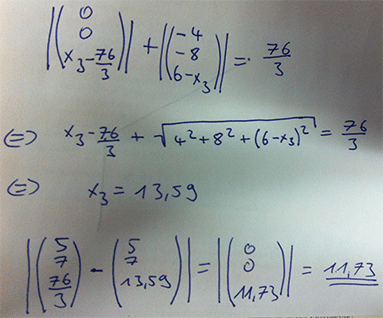 |(0 0 x₃-76/3)| + |(-4 -8 6-x₃)| = 76/3
(=) x₃-76/3 + √(4²+8²+(6-x₃)²) = 76/3
(=) x₃ = 13,59
|(5 7 76/3) - (5 7 13,59)| = |(0 0 11,73)| = 11,73